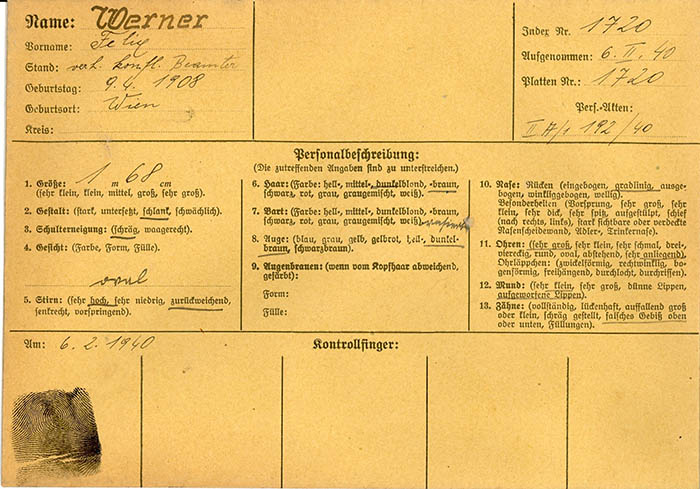 Name: Werner
Vorname: Felix
Stand: verh. konfl. Beamter
Geburtstag: 9.4.1908
Geburtsort: Wien
Kreis:
Index Nr. 1720
Aufgenommen: 6. II. 40
Platten Nr.: 1720
Pers.-Akten:
192/40
Personalbeschreibung:
(Die zutreffenden Angaben sind zu unterstreichen.)
1. Größe: 1 m 68 cm
(sehr klein, klein, mittel, groß, sehr groß).
2. Gestalt: (stark, untersetzt, schlank, schwächlich).
3. Schulterneigung: (schräg, waagerecht).
4. Gesicht: (Farbe, Form, Fülle).
oval
5. Stirn: (sehr hoch, sehr niedrig, zurückweichend,
senkrecht, vorspringend).
6. Haar: (Farbe: hell-, mittel-, dunkelblond, -braun,
schwarz, rot, grau, graugemischt, weiß).
7. Bart: (Farbe: hell-, mittel-, dunkelblond, -braun,
schwarz, rot, grau, graugemischt, weiß) rasiert
8. Auge: (blau, grau, gelb, gelbrot, hell-, dunkel-
braun, schwarzbraun).
9. Augenbrauen: (wenn vom Kopfhaar abweichend,
gefärbt):
Form:
Fülle:
10. Nase: Rücken (eingebogen, gradlinig, ausge-
bogen, winkliggebogen, wellig).
Besonderheiten (Vorsprung, sehr groß, sehr
klein, sehr dick, sehr spitz, aufgestülpt, schief
(nach rechts, links), stark sichtbare oder verdeckte
Nasenscheidewand, Adler-, Trinkernase).
11. Ohren: (sehr groß, sehr klein, sehr schmal, drei-
viereckig, rund, oval, abstehend, sehr anliegend)
Ohrläppchen: (zwickelförmig, rechtwinklig, bo-
genförmig, freihängend, durchlocht, durchrissen).
12. Mund: (sehr klein, sehr groß, dünne Lippen,
aufgeworfene Lippen).
13. Zähne: (vollständig, lückenhaft, auffallend groß
oder klein, schräg gestellt, falsches Gebiß oben
oder unten, Füllungen).
Am: 6.2.1940
Kontrollfinger: